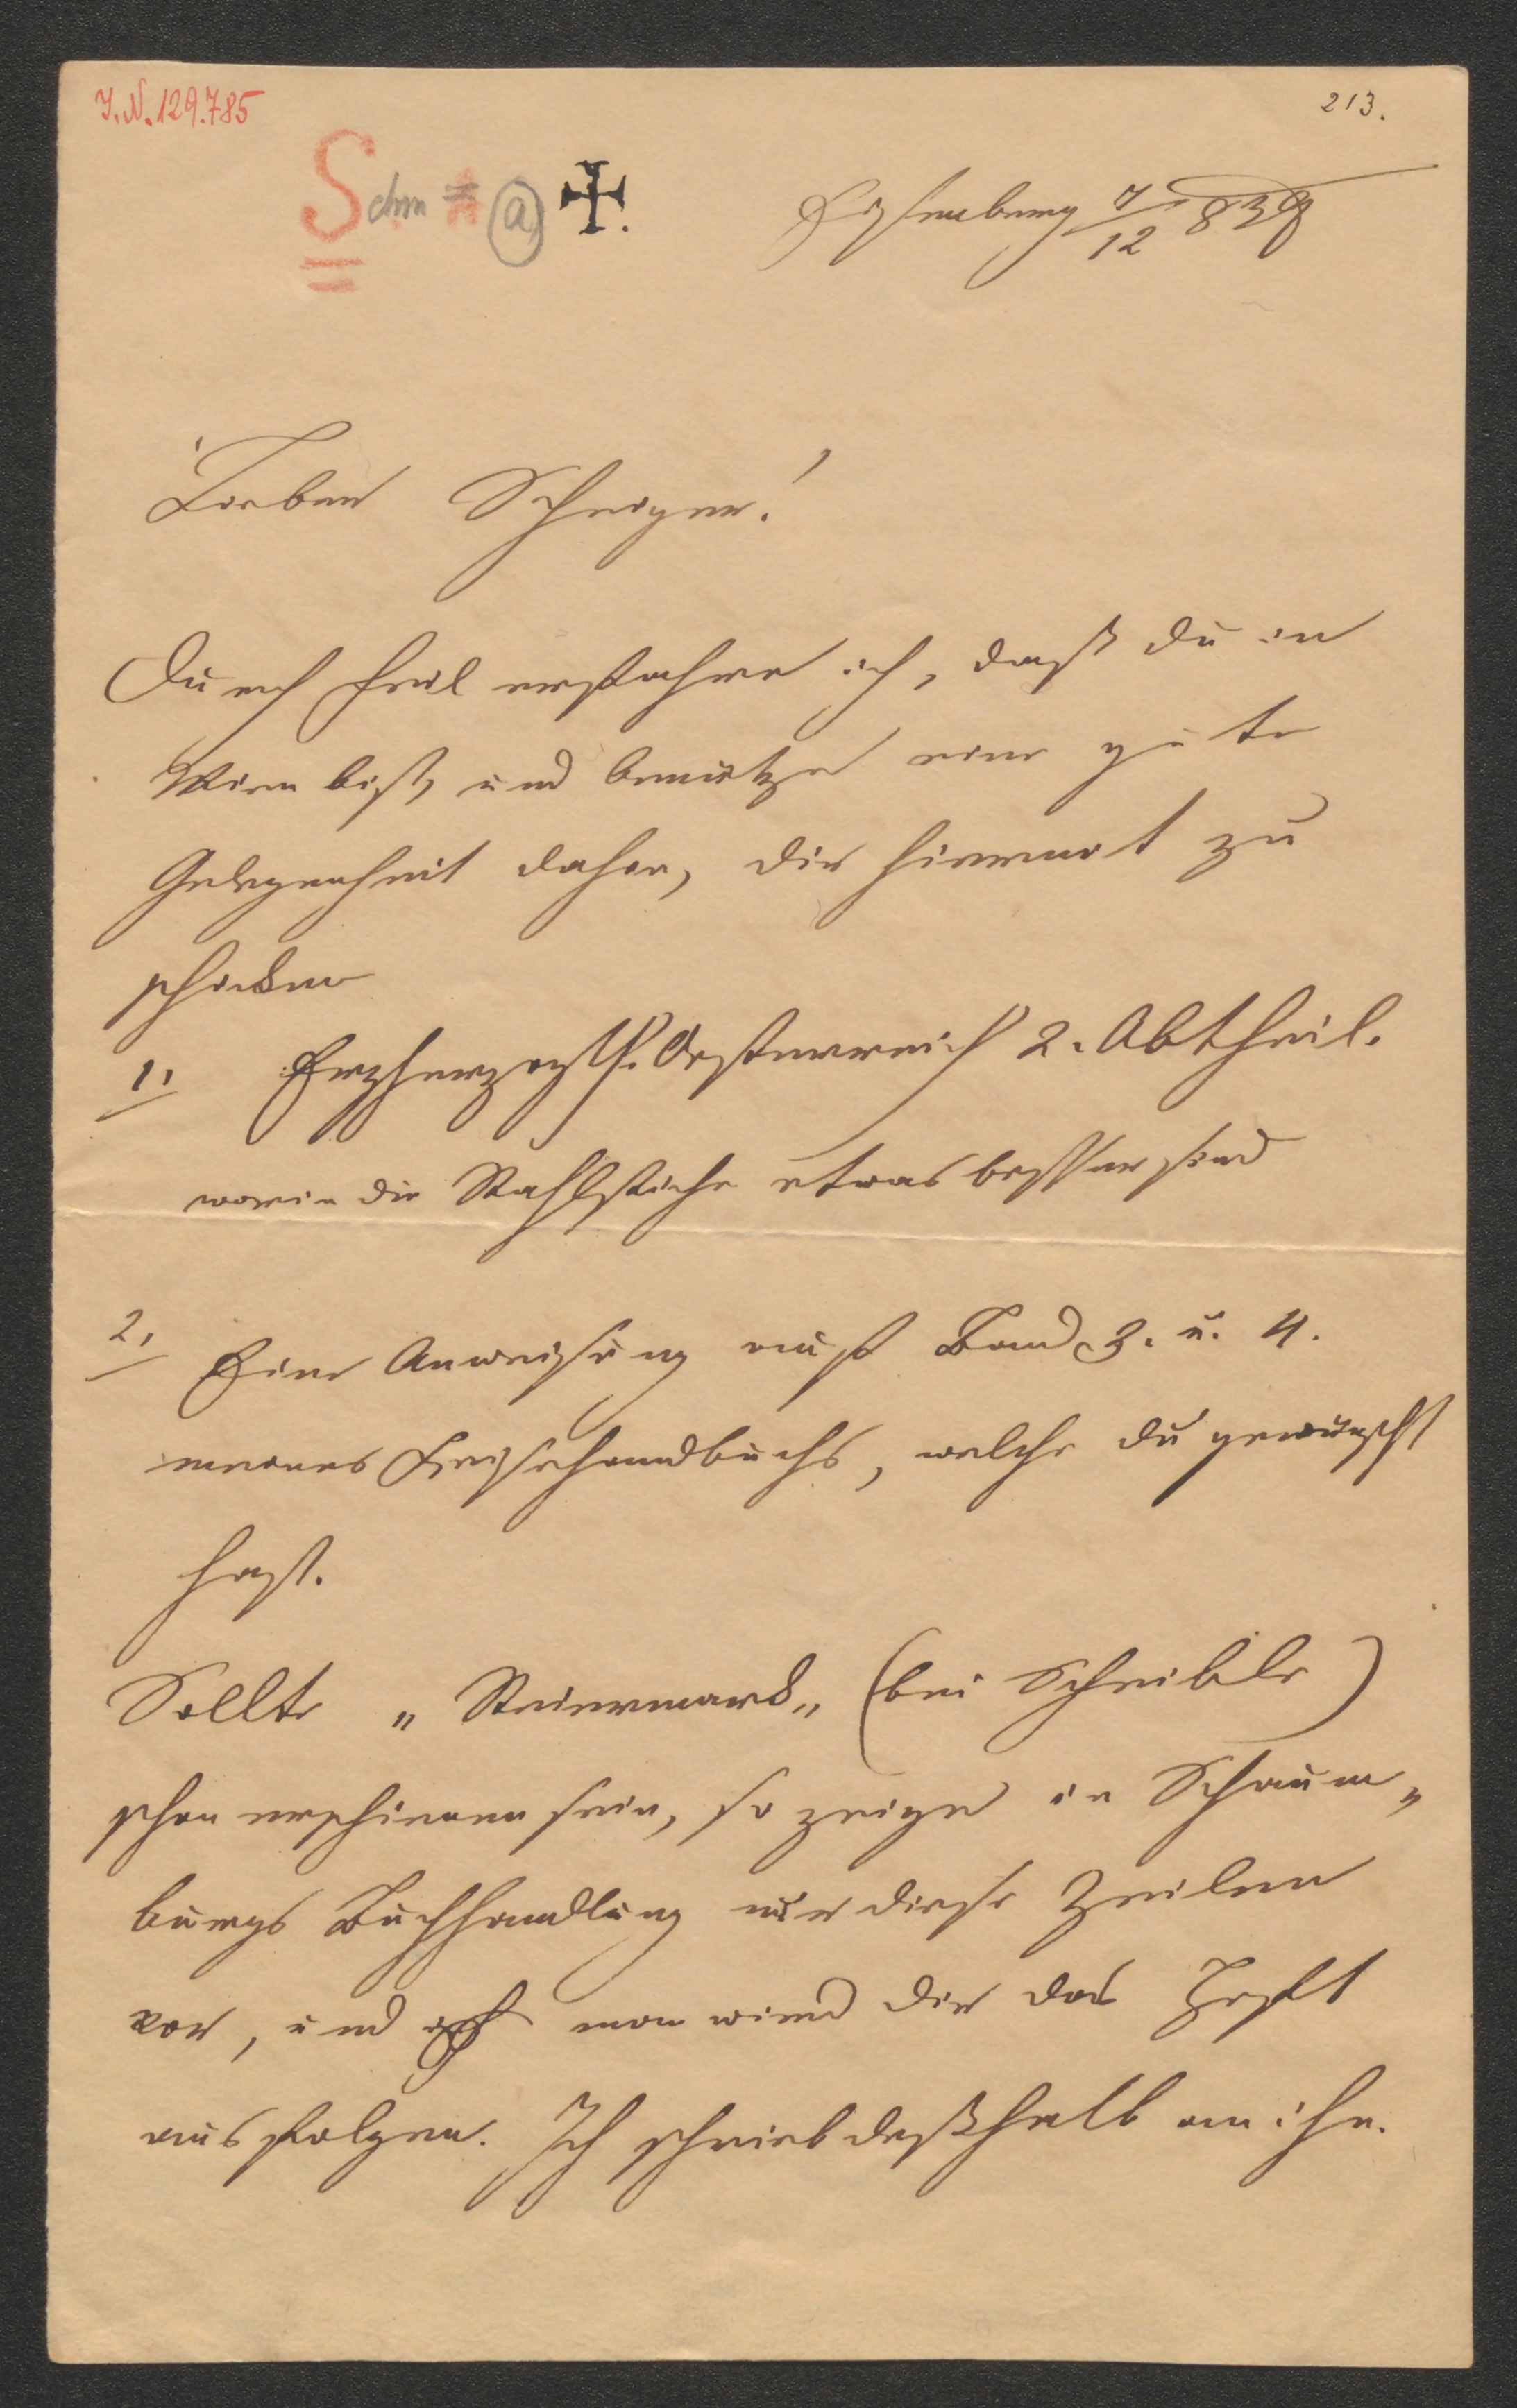 I.N. 129.785
213.
Schm = a
7/12 839
Lieber Scheiger!
Durch Feil erfahre ich, daß du in
Wien bist, und benütze eine gute
Gelegenheit daher, dir hiermit zu
schicken
1. Erzherzogth. Oesterreich 2. Abtheil.
worin die Stahlstiche etwas besser sind
2. Eine Anweisung auf Band 3. u. 4.
meines Reisehandbuchs, welche du gewünscht
hast.
Sollte „Steiermark„ (bei Scheible)
schon erschienen sein, so zeige in Schaum„
burgs Buchhandlung nur diese Zeilen
vor, und man wird dir das Heft
ausfolgen. Ich schrieb deßhalb an ihn.